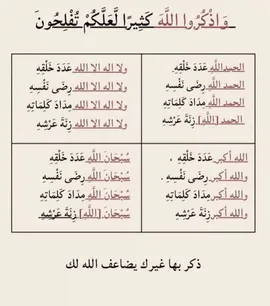 وَاذْكُرُوا اللَّهَ كَثِيرًا لَّعَلَّكُمْ تُفْلِحُونَ
الحمدالله عَدَدَ خَلْقِهِ
الحمد الله رِضَى نَفْسِهِ
الحمد الله مِدَادَ كَلِمَاتِهِ
الحمد [الله] زِنَةَ عَرْشِهِ
ولا اله الا الله عَدَدَ خَلْقِهِ
ولا اله الا الله رِضَى نَفْسِهِ
ولا اله الا الله مِدَادَ كَلِمَاتِهِ
ولا اله الا الله زِنَةَ عَرْشِهِ
الله أكبر عَدَدَ خَلْقِهِ ،
والله أكبر رِضَى نَفْسِهِ .
والله أكبر مِدَادَ كَلِمَاتِهِ
والله أكبر زِنَةَ عَرْشِهِ
سُبْحَانَ اللَّهِ عَدَدَ خَلْقِهِ
سُبْحَانَ اللَّهِ رِضَى نَفْسِهِ
سُبْحَانَ اللَّهِ مِدَادَ كَلِمَاتِهِ
سُبْحَانَ [اللَّهِ] زِنَةَ عَرْشِهِ
ذكر بها غيرك يضاعف الله لك